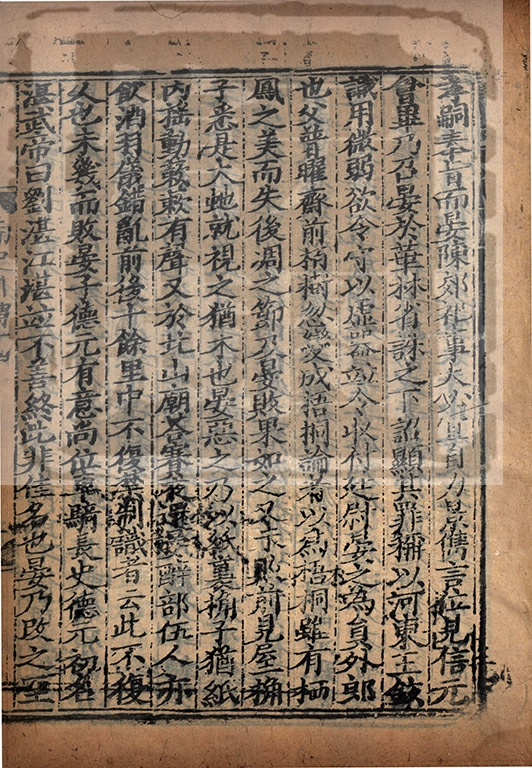 孝嗣奉旨而晏陳郊祀事大必宜自力景雋言益見信元
會畢乃召晏於華林省誅之下詔顯其罪稱以河東王鉉
識用微弱欲令守以虛器並令收付廷尉晏之為員外郎
也父普曜齋前栢樹忽變成梧桐論者以為梧桐雖有栖
鳳之美而失後凋之節及晏敗果如之又未敗前見屋桷
子悉是大虵就視之猶木也晏惡之乃以紙裹桷子猶紙
內搖動蔌蔌有聲又於北山廟荅賽夜還晏醉部伍人亦
飲酒羽儀錯亂前後十餘里中不復禁制識者云此不復
久也未幾而敗晏子德元有意尚位車騎長史德元初名
湛武帝曰劉湛江湛並不善終此非佳名也晏乃改之至